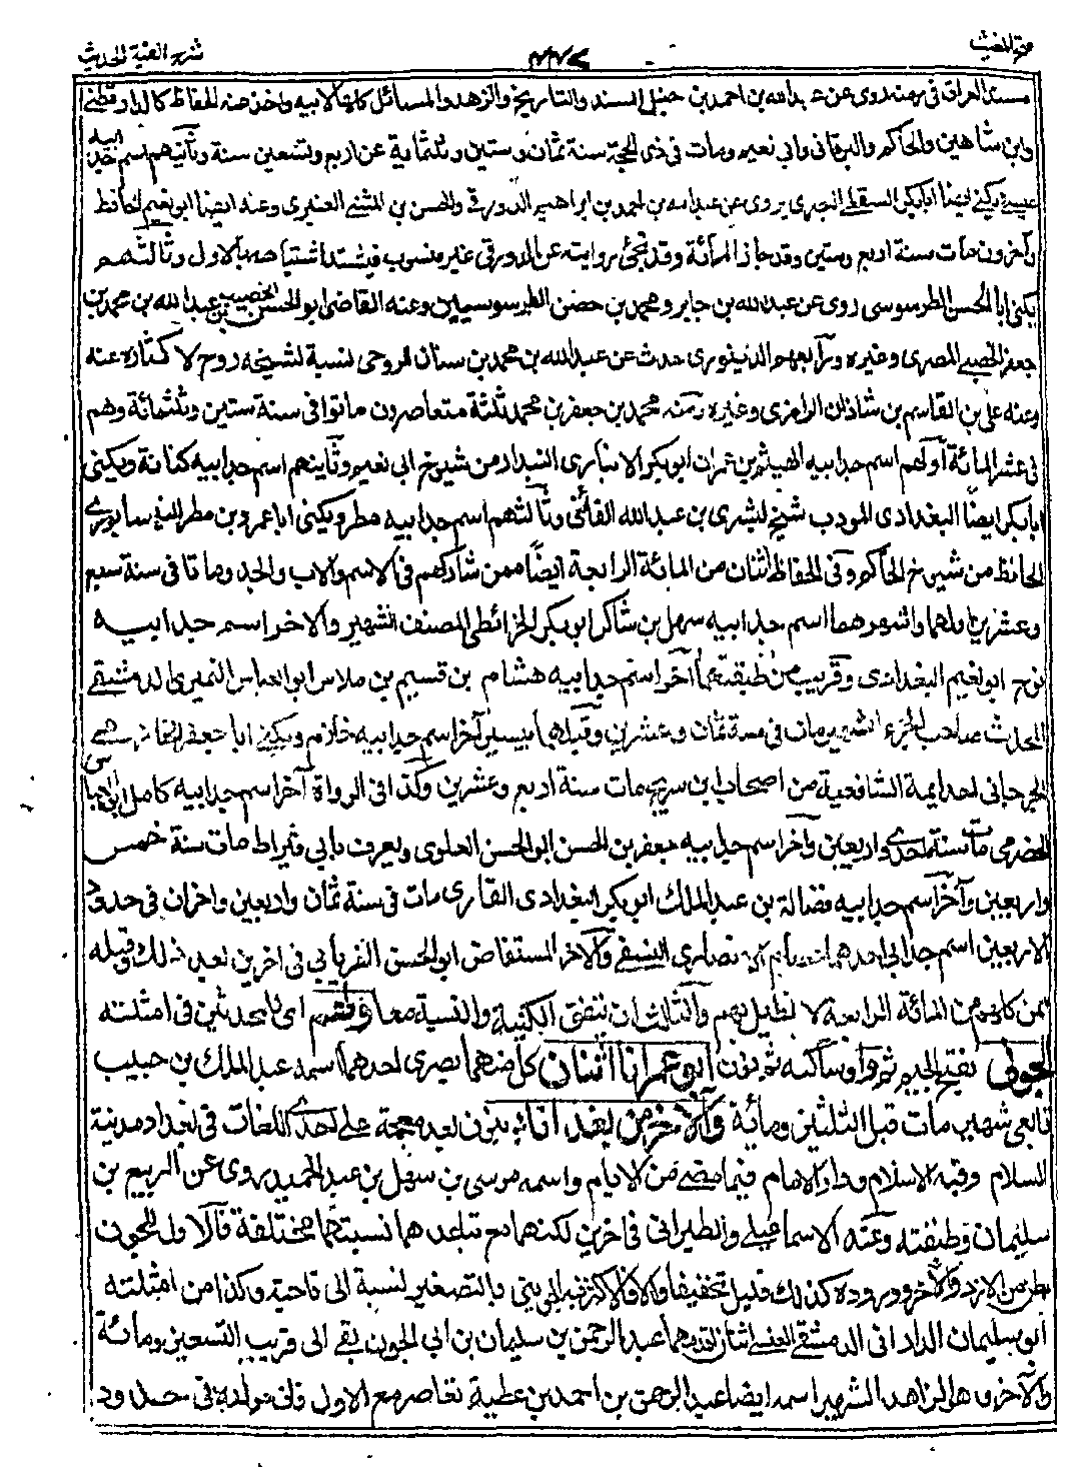 فتح المغيث
شرح الفية الحديث
مسند العراق في عن عبد الله بن احمد بن حنبل المسند والتاريخ والزهد والمسائل كلها لابيه واخذ عنه الحفاظ كالدارقطني
وابن شاهين والحاكم والبرقاني وابي نعيم ومات في ذي الحجة سنة ثمان وستين وثلثماية عن اربع وتسعين سنة وثانيهم اسم جد ابيه
عيسى يكنى ايضا ابا بكر السقطي البصري يروي عن عبد الله بن احمد بن ابراهيم الدورقي والحسن بن المثنى العنبري وعنه ايضا ابو نعيم الحافظ
وآخرون مات سنة اربع وستين وقد جاز المائة وقد تجئ روايته عن الدورقي غير منسوب فيشتد اشتباهه بالاول وثالثهم
يكنى ابا الحسن الطرسوسي روى عن عبد الله بن جابر ومحمد بن حصن الطرسوسيين وعنه القاضي ابو الحسن الخصيب بن عبد الله بن محمد بن
جعفر الخصيبي المصري وغيره ورابعهم الدينوري حدث عن عبد الله بن محمد بن سنان الروحي نسبة لشيخه روح لاكثاره عنه
وعنه علي بن القاسم بن شاذان الرازي وغيره ومنه محمد بن جعفر بن محمد ثلثة متعاصرون ماتوا في سنة ستين وثلثمائة وهم
في عشر المائة اولهم اسم جد ابيه الهيثم بن عمران ابو بكر الانباري البندار من شيوخ ابي نعيم وثانيهم اسم جد ابيه كنانة ويكنى
ابا بكر ايضا البغدادي المودب شيخ لبشرى بن عبد الله الفاتني وثالثهم اسم جد ابيه مطر ويكنى ابا عمرو بن مطر النيسابوري
الحافظ من شيوخ الحاكم وفي الحفاظ اثنان من المائة الرابعة ايضا ممن شاركهم في الاسم والاب والجد وماتا في سنة سبع
وعشرين اولهما واشهرهما اسم جد ابيه سهل بن شاكر ابو بكر الخرائطي المصنف الشهير والاخر اسم جد ابيه
نوح ابو نعيم البغدادي وقريب من طبقتهما آخر اسم جد ابيه هشام بن قسيم بن ملاس ابو العباس النميري الدمشقي
المحدث صاحب الجزء الشهير مات في سنة ثمان وعشرين وقبلهما بيسير آخر اسم جد ابيه خازم ويكنى ابا جعفر
الجرجاني احد ايمة الشافعية من اصحاب ابن سريج مات سنة اربع وعشرين وكذا في الرواة آخر اسم جد ابيه كامل ابو العباس
الحضرمي مات سنة احدى واربعين وآخر اسم جد ابيه جعفر بن الحسن ابو الحسن العلوي ويعرف بابي قيراط مات سنة خمس
واربعين وآخر اسم جد ابيه فضالة بن عبد الملك ابو بكر البغدادي القاري مات في سنة ثمان واربعين واخران في حدود
الاربعين اسم جد ابي احدهما الانصاري النسفي والآخر المستفاض ابو الحسن الفريابي في اخرين بعد ذلك وقبله
ممن كلهم من المائة الرابعة لا نطيل بهم والثالث ان تتفق الكنية والنسبة معا ونحوهم اي المحدثين في امثلته
الجوني بفتح الجيم ثم واو ساكنة ثم نون ابو عمران اثنان كل منهما بصري احدهما اسمه عبد الملك بن حبيب
تابعي شهير مات قبل الثلثين ومائة والاخر من بغدانا بنون بعد معجمة على احدى اللغات في بغداد مدينة
السلام وقبة الاسلام ودار الامام فيما مضى من الايام واسمه موسى بن سهل بن عبد الحميد يروي عن الربيع بن
سليمان وطبقته وعنه الاسماعيلي والطبراني في اخرين لكنهما مع تباعدهما نسبتهما مختلفة فالاول للجون
بطن من الازد والآخر وروده كذلك قليل تخفيفا والا فالاكثر فيه الجويني بالتصغير لنسبة الى ناحية وكذا من امثلته
ابو سليمان الداراني الدمشقي العنسي اثنان اقدمهما عبد الرحمن بن سليمان بن ابي الجون بقي الى قريب التسعين ومائة
والآخر وهو الزاهد الشهير اسمه ايضا عبد الرحمن بن احمد بن عطية تعاصر مع الاول فان مولده في حدود